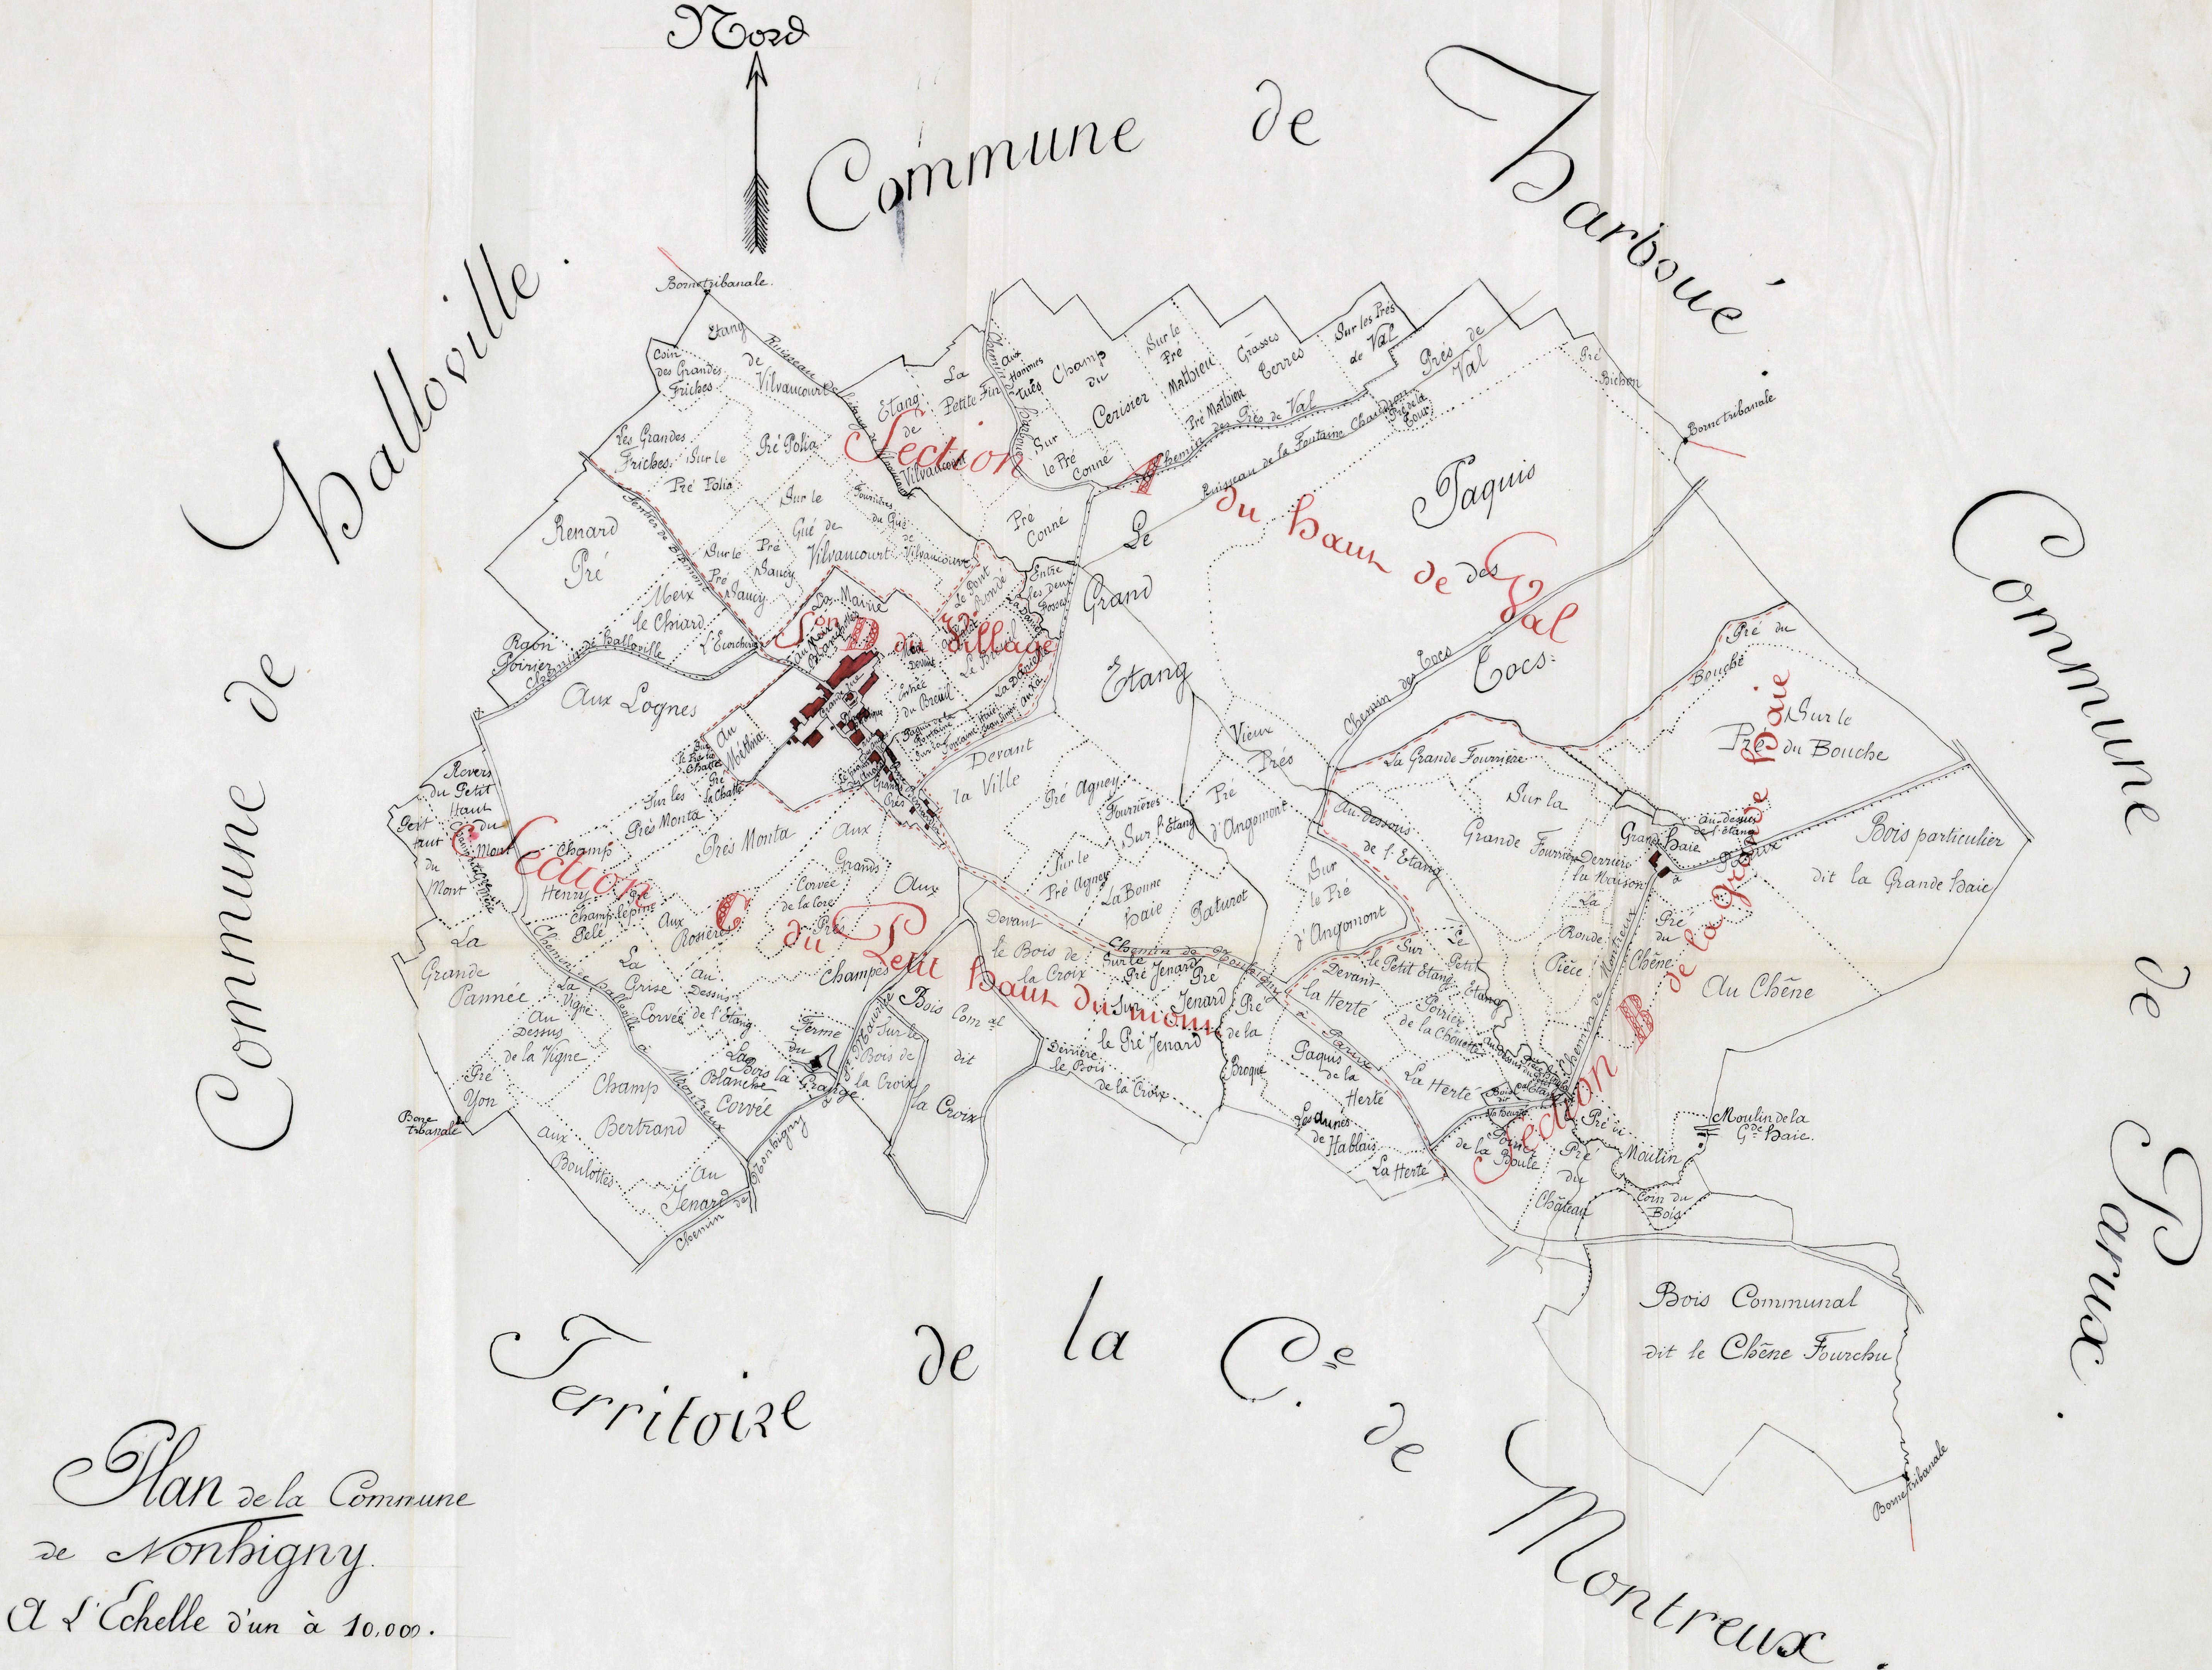 Nord
Commune de Harboué.
Commune de Halloville.
Commune de Parux.
Territoire de la C.e de Montreux.
Plan de la Commune
de Nonhigny.
A L'Echelle d'un à 10.000.
Section A du haut de Val
Son D du Village
Section C du Petit haut du mont
Section B de la Grande Haie
Borne tribanale.
Etang
de
Vilvaucourt
Coin
des Grandes
Friches
Ruisseau de l'étang de Vilvaucourt
Les Grandes
Friches
Sur le
Pré Polia
Pré Polia
Etang
de
Vilvaucourt
La
Petite Fin
Aux
Hommes
tués
Champ
du
Cerisier
Sur le
Pré
Mathieu
Pré Mathieu
Grasses
Terres
Sur les Prés
de Val
Prés de
Val
Pré
Bichon
Borne tribanale
Sur
le Pré
Conné
Chemin des Prés de Val
Ruisseau de la Fontaine Chaudron
Pré de la
Cour
Pré
Conné
Le
Grand
Etang
Paquis
des
Cocs
Chemin des Cocs
Renard
Pré
Sur le
Gué de
Vilvaucourt
Fourrières
du Gué
de
Vilvaucourt
Sur le
Pré
Saucy
Pré
Saucy
Meix
le Chiard
Raon
Poirier
Chemin de Halloville
Aux Lognes
Le Pont
Rondé
Entre
les deux
Fosses
Le Breuil
Entrée
du Breuil
Grande Rue
Au
Méthia
Pré
la Chatte
Devant
la Ville
Pré Agney
Fourrières
Sur l'Etang
Vieux
Prés
Pré
d'Angomont
Sur le
Pré Agney
La Bonne
haie
Paturot
Sur
le Pré
d'Angomont
Au-dessous
de l'Etang
La Grande Fourrière
Sur la
Grande Fourrière
Pré du
Bouche
Sur le
Pré du Bouche
Grand haie
Au-dessus
de l'étang
Derrière
la Maison
Bois particulier
dit la Grande haie
La
Ronde
Pièce
Pré
du
Chêne
Au Chêne
Chemin de Montreux à Parux
Revers
du Petit
Haut
du
Mont
Petit
haut
du
Mont
Sur les
Prés Monta
Prés Monta
Champ
Henry
Champ
Pelé
Aux
Rosières
Corvée
de la Core
Aux
Grands
Prés
Aux
Champés
La
Grande
Pannée
Chemin de Halloville à Montreux
La
Vigne
Au
Dessus
de la Vigne
La
Grise
Corvée
Au
Dessus
de l'Etang
Ferme
du
Bois la Grange
La
Blanche
Corvée
Pré
Yon
Borne
tribanale
Champ
Bertrand
Aux
Boulottes
Au
Jenard
Chemin de Nonhigny à Neuviller
Sur le
Bois de
la Croix
Bois Com.al
dit
la Croix
Devant
le Bois de
la Croix
Chemin de Nonhigny à Parux
Sur le
Pré Jenard
Pré
Jenard
Sur
le Pré Jenard
Derrière
le Bois
de la Croix
Pré
de la
Broque
Devant
la Herté
Sur
le Petit Etang
Le
Petit
Etang
Poirier
de la Chouette
Paquis
de la
Herté
La Herté
Les Aunés
de Hablais
La Herté
Pré
du
Château
Pré
Moulin
Moulin de la
G.de haie.
Coin du
Bois
Bois Communal
dit le Chêne Fourchu
Borne tribanale